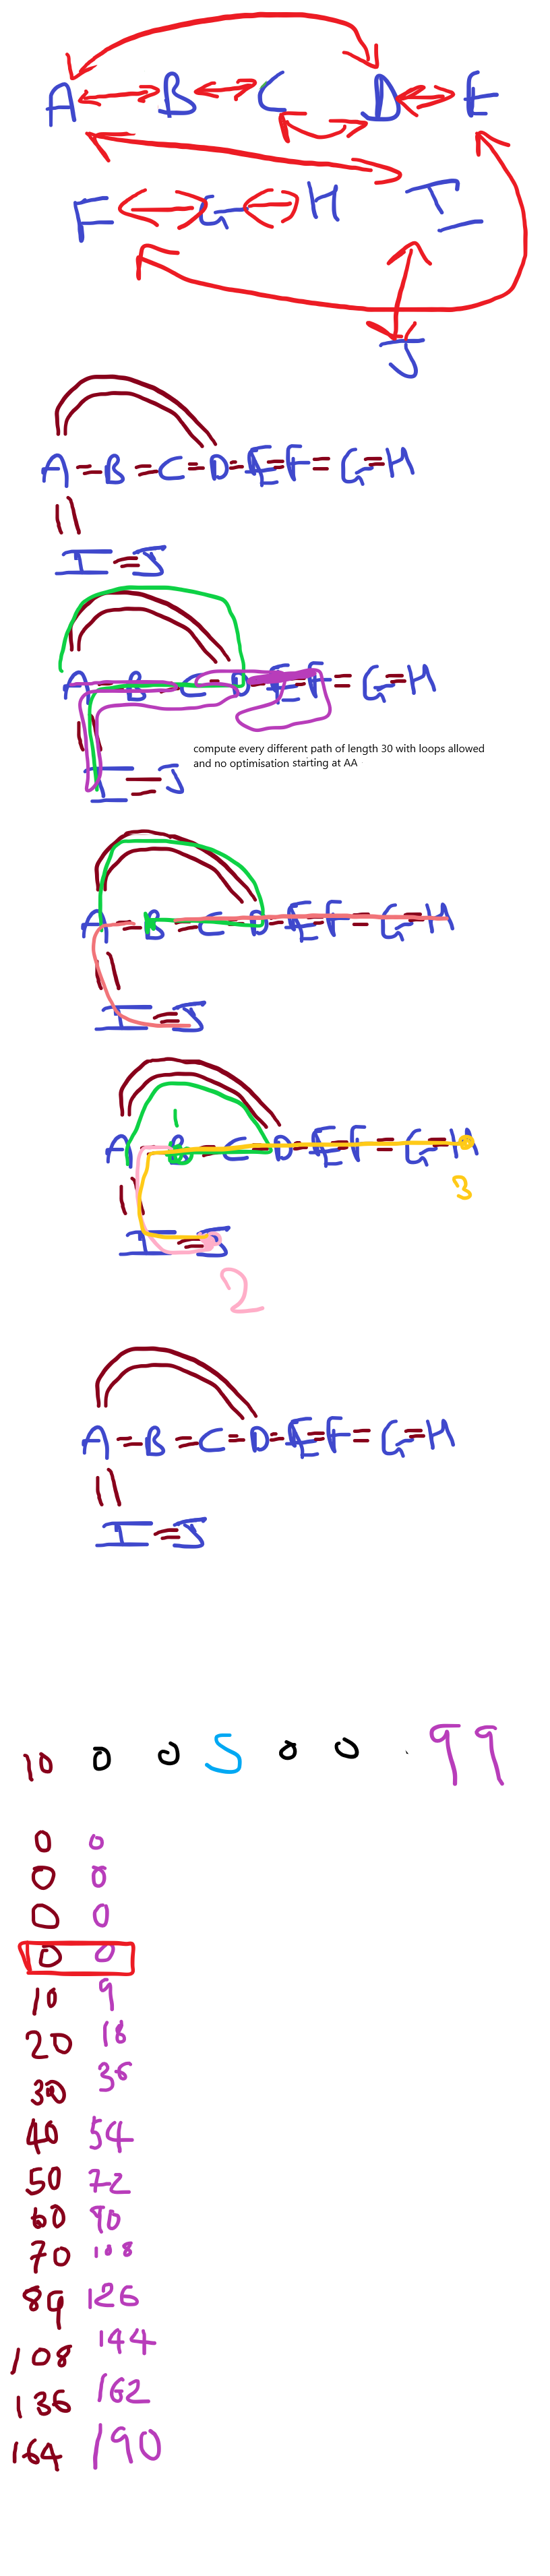 A B C D E
F G H I
J
A = B = C = D = E = F = G = H
||
I = J
A = B = C = D = E = F = G = H
||
I = J
compute every different path of length 30 with loops allowed
and no optimisation starting at AA
A = B = C = D = E = F = G = H
||
I = J
1
A = B = C = D = E = F = G = H
||
I = J
3
2
A = B = C = D = E = F = G = H
||
I = J
10 0 0 5 0 0 . 99
0 0
0 0
0 0
0 0
10 9
20 18
30 36
40 54
50 72
60 90
70 108
89 126
108 144
136 162
164 190